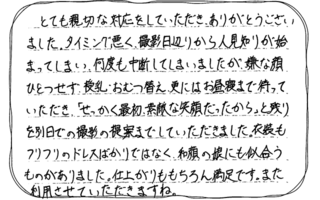 とても親切な対応をしていただき、ありがとうござい
ました。タイミング悪く、撮影日辺りから人見知りが始
まってしまい、何度も中断してしまいましたが、嫌な顔
ひとつせず、授乳・おむつ替え、更にはお昼寝まで待って
いただき、「せっかく最初、素敵な笑顔だったから。」と残り
を別日での撮影の提案までしていただきました。衣装も
フリフリのドレスばかりではなく、和顔の娘にも似合う
ものがありました。仕上がりももちろん満足です。また
利用させていただきますね。